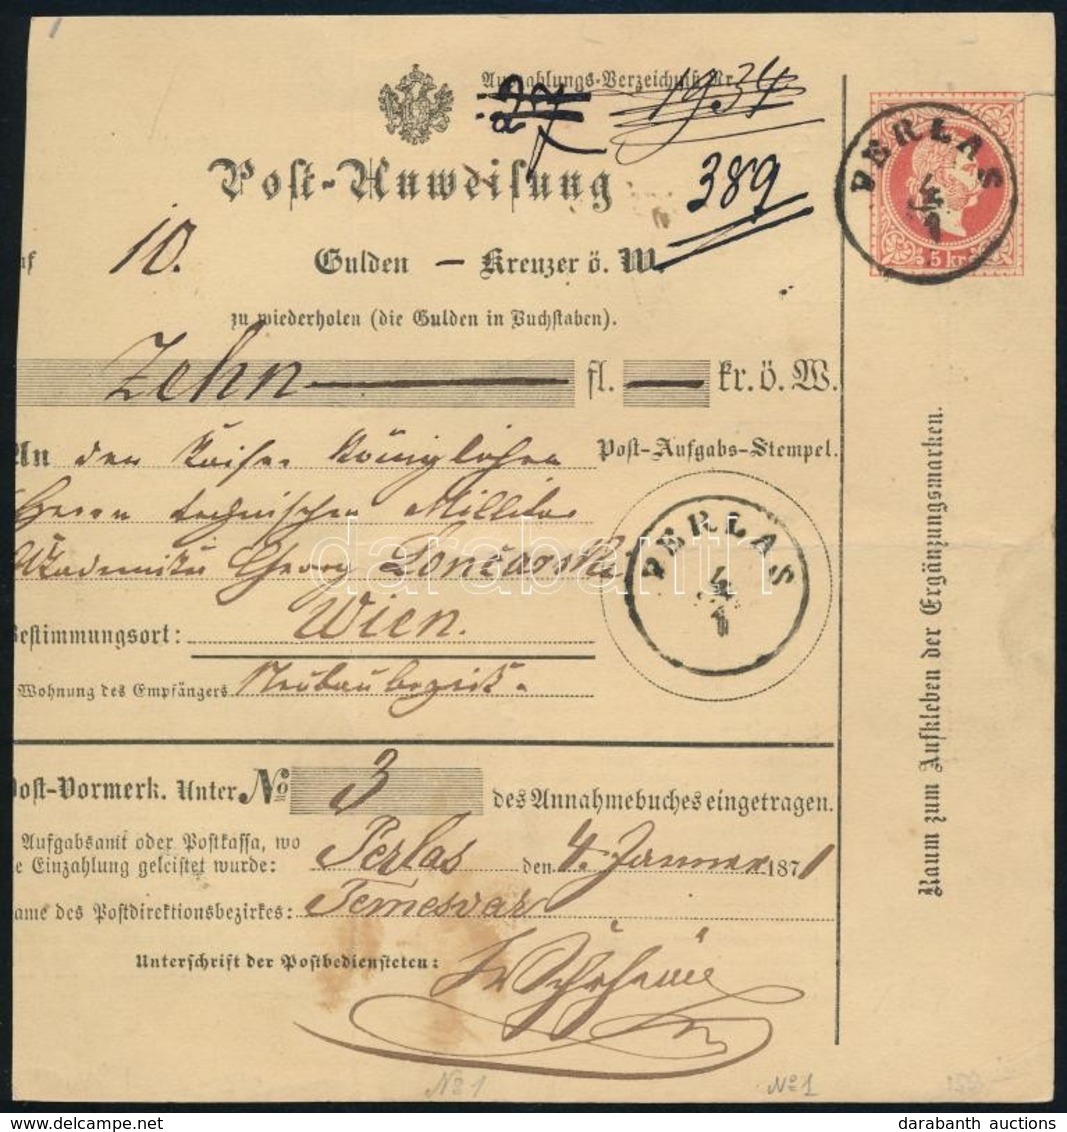 Auszahlungs-Verzeichniß Nr.
27
1934
389
Post-Anweisung
PERLAS
4
1
5 kr
uf 10. Gulden — Kreuzer ö. W.
zu wiederholen (die Gulden in Buchstaben).
Zehn fl. — kr. ö. W.
An den Kaiser Königlichen
Post-Aufgabs-Stempel.
Herrn technischen
Georg
Wien.
Bestimmungsort:
PERLAS
4
1
Wohnung des Empfängers Neubaubezirk.
Raum zum Aufkleben der Ergänzungsmarken.
Post-Vormerk. Unter No 3 des Annahmebuches eingetragen.
Aufgabsamt oder Postkassa, wo
e Einzahlung geleistet wurde: Perlas den 4. Januar 1871
ame des Postdirektionsbezirkes: Temesvar
Unterschrift der Postbediensteten:
No 1
No 1
darabanth
darabanth auctions